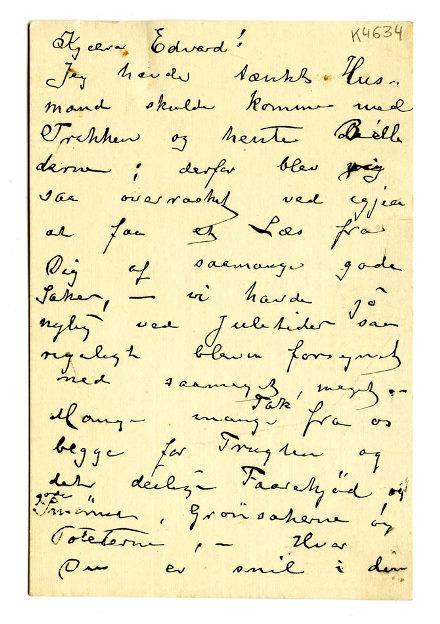 K4634
Kjære Edvard!
Jeg havde tænkt Hus-
mand skulde komme med
Trækken og hente Bille
derne; derfor blev jeg
saa overrasket ved igjen
at faa et Læs fra
Dig af saamange gode
Saker, — vi havde jo
nylig ved Juletider saa
rigeligt bleven forsynet
med saameget, meget —
Mange mange Tak fra os
begge for Frugten og
det deilige Faarekjød og
gode Smörret, Grönsakerne og
Poteterne, — Hvor
Du er snil i din